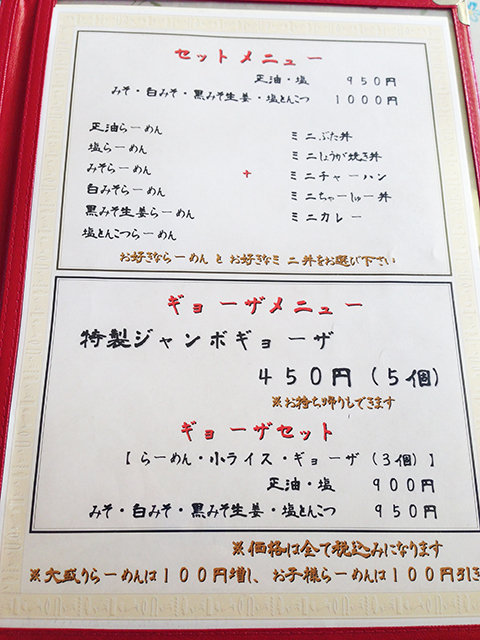 セットメニュー
正油・塩　９５０円
みそ・白みそ・黒みそ生姜・塩とんこつ　１０００円
正油らーめん
塩らーめん
みそらーめん
白みそらーめん
黒みそ生姜らーめん
塩とんこつらーめん
+
ミニぶた丼
ミニしょうが焼き丼
ミニチャーハン
ミニちゃーしゅー丼
ミニカレー
お好きならーめんとお好きなミニ丼をお選び下さい
ギョーザメニュー
特製ジャンボギョーザ
４５０円（５個）
※お持ち帰りもできます
ギョーザセット
【らーめん・小ライス・ギョーザ（３個）】
正油・塩　９００円
みそ・白みそ・黒みそ生姜・塩とんこつ　９５０円
※価格は全て税込みになります
※大盛りらーめんは１００円増し、お子様らーめんは１００円引き